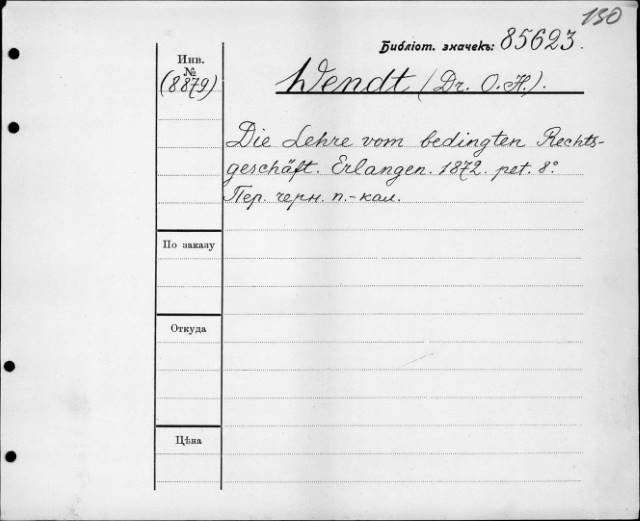 130
Библіот. значекъ: 85623.
Инв.
№
(8879)
Wendt (Dr. O. H.).
Die Lehre vom bedingten Rechts-
geschäft. Erlangen. 1872. pet. 8°.
Пер. черн. п.-кал.
По заказу
Откуда
Цѣна